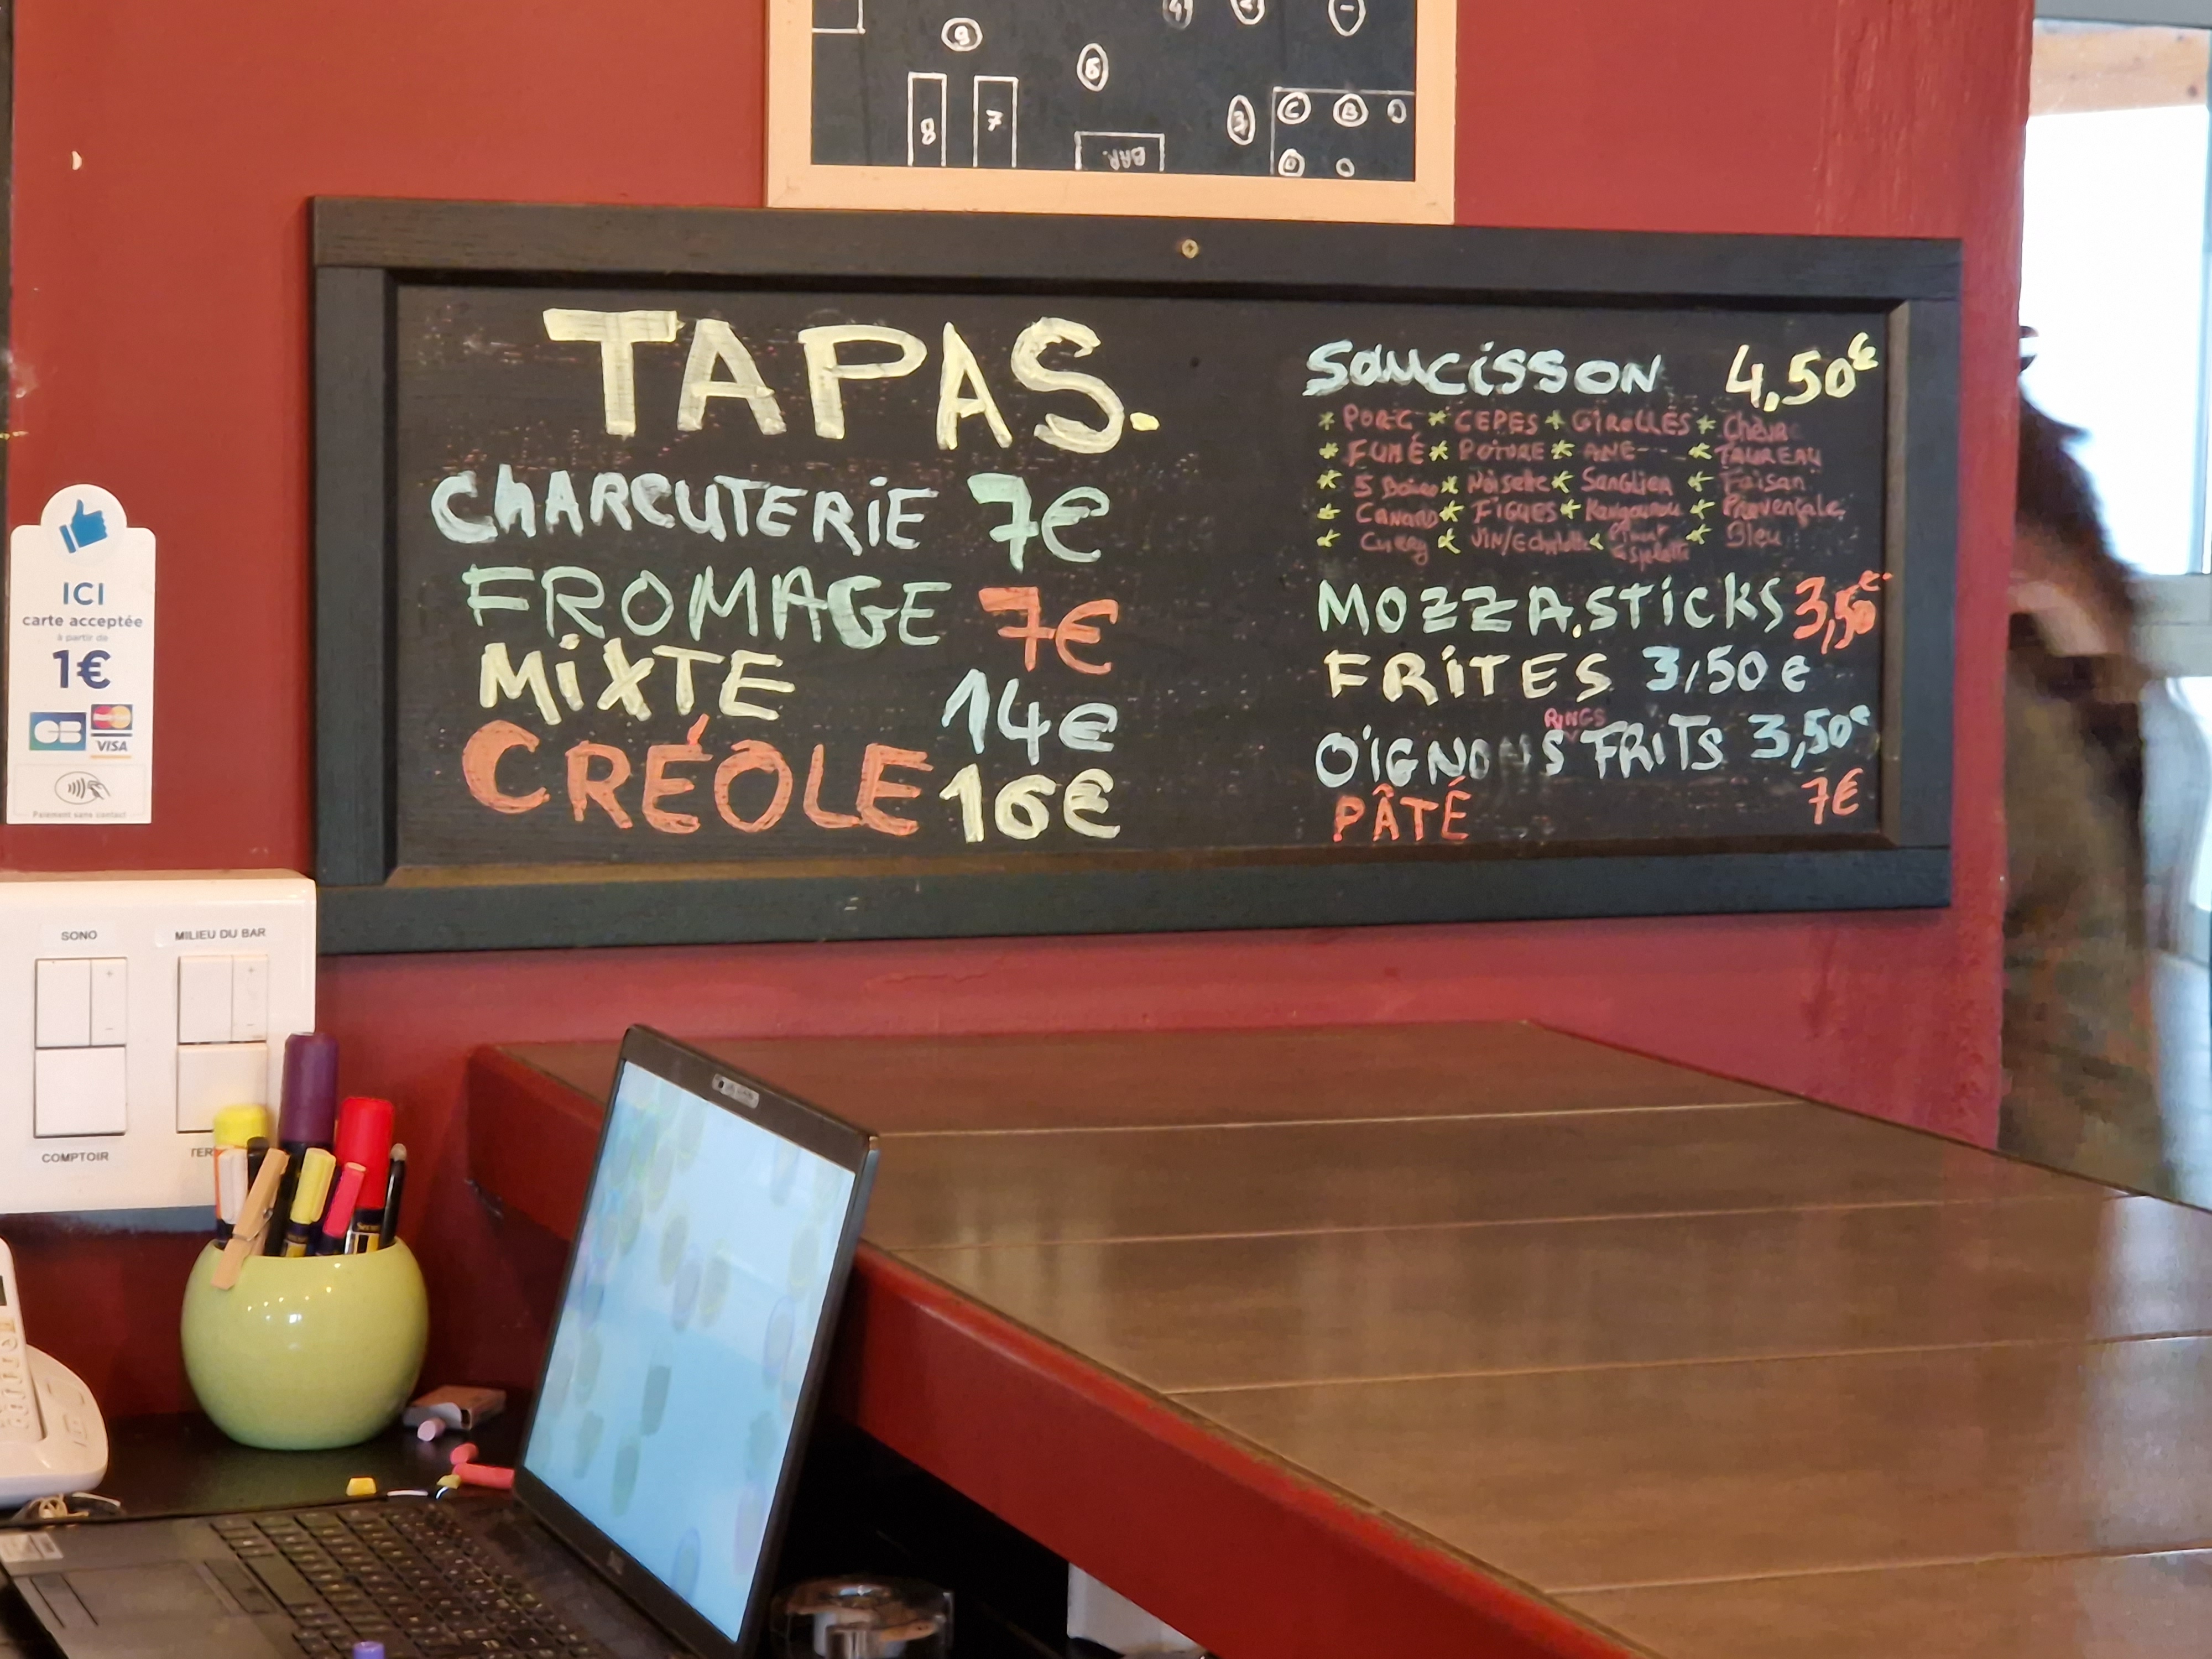 9
6
8
7
3
C
B
BAR
TAPAS.
CHARCUTERIE 7€
FROMAGE 7€
MIXTE 14€
CRÉOLE 16€
SAUCISSON 4,50€
* PORC * CEPES * GIROLLES * Chèvre
* FUMÉ * POIVRE * ANE * TAUREAU
* 5 Baies * Noisette * Sanglier * Faisan
* CANARD * FIGUES * Kangourou * Provençale
* Curry * VIN/Echalotte * Piment Esplette * Bleu
MOZZA.STICKS 3,50€
FRITES 3,50€
RINGS
OIGNONS FRITS 3,50€
PÂTÉ 7€
ICI
carte acceptée
à partir de
1€
CB
MasterCard
VISA
Paiement sans contact
SONO
MILIEU DU BAR
COMPTOIR
TER